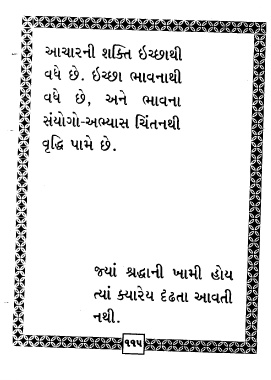 આચારની શક્તિ ઇચ્છાથી
વધે છે. ઇચ્છા ભાવનાથી
વધે છે, અને ભાવના
સંયોગો-અભ્યાસ ચિંતનથી
વૃદ્ધિ પામે છે.
જ્યાં શ્રદ્ધાની ખામી હોય
ત્યાં ક્યારેય દૃઢતા આવતી
નથી.
૧૧૫